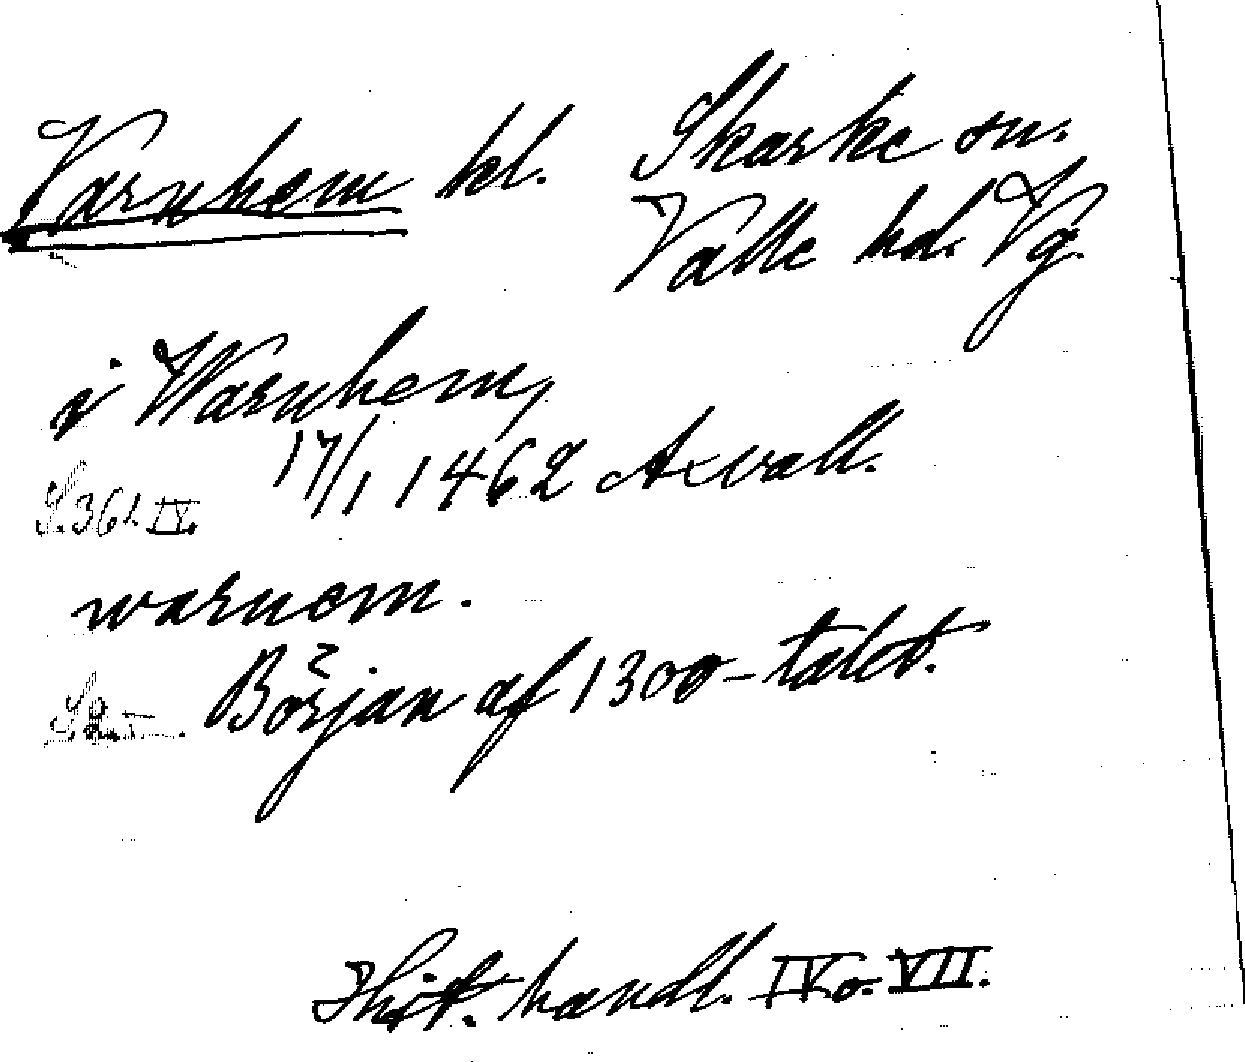 Varnhem kl. Skarke sn.
Valle hd. Vg.
i Warnhem,
17/1 1462 Axvall.
S. 362 IV.
warnem.
Början af 1300-talet.
Hist. handl. IV o. VII.